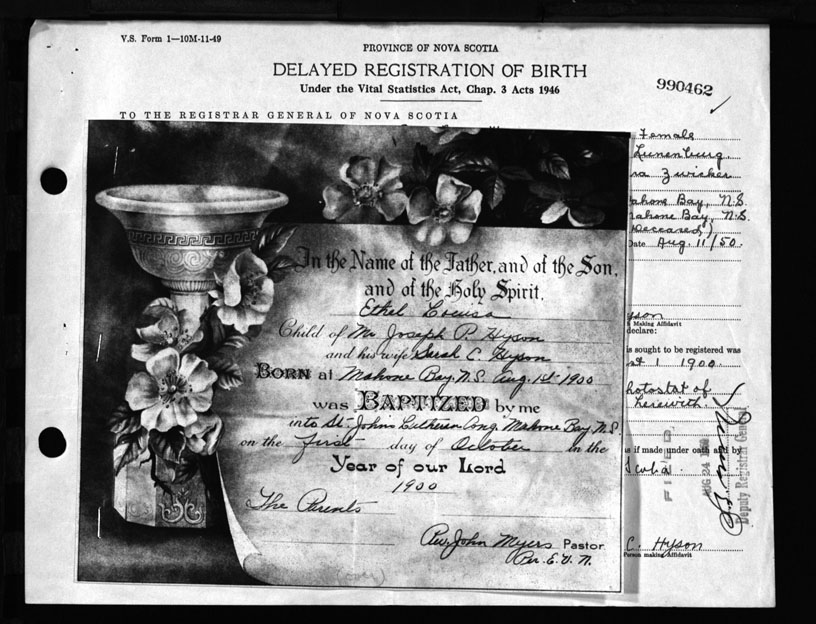 V.S. Form 1—10M-11-49
PROVINCE OF NOVA SCOTIA
DELAYED REGISTRATION OF BIRTH
Under the Vital Statistics Act, Chap. 3 Acts 1946
990462
TO THE REGISTRAR GENERAL OF NOVA SCOTIA
Female
Lunenburg.
Zwicker
ahone Bay, N.S.
ahone Bay, N.S.
Deceased)
Date Aug. 11/50.
In the Name of the Father, and of the Son,
and of the Holy Spirit.
Ethel Louisa
Child of Mr Joseph P. Hyson
and his wife Sarah C. Hyson
BORN at Mahone Bay, N.S. Aug. 1st 1900
was BAPTIZED by me
into St. John's Lutheran Cong. Mahone Bay N.S.
on the first day of October in the
Year of our Lord
1900
The Parents
Rev John Myers Pastor
Per. E.V.N.
yson
Making Affidavit
declare:
is sought to be registered was
st 1 1900.
hotostat of
herewith.
as if made under oath and by
Scotia.
FILED
AUG 24 1950
Deputy Registrar General
C. Hyson
Person making Affidavit